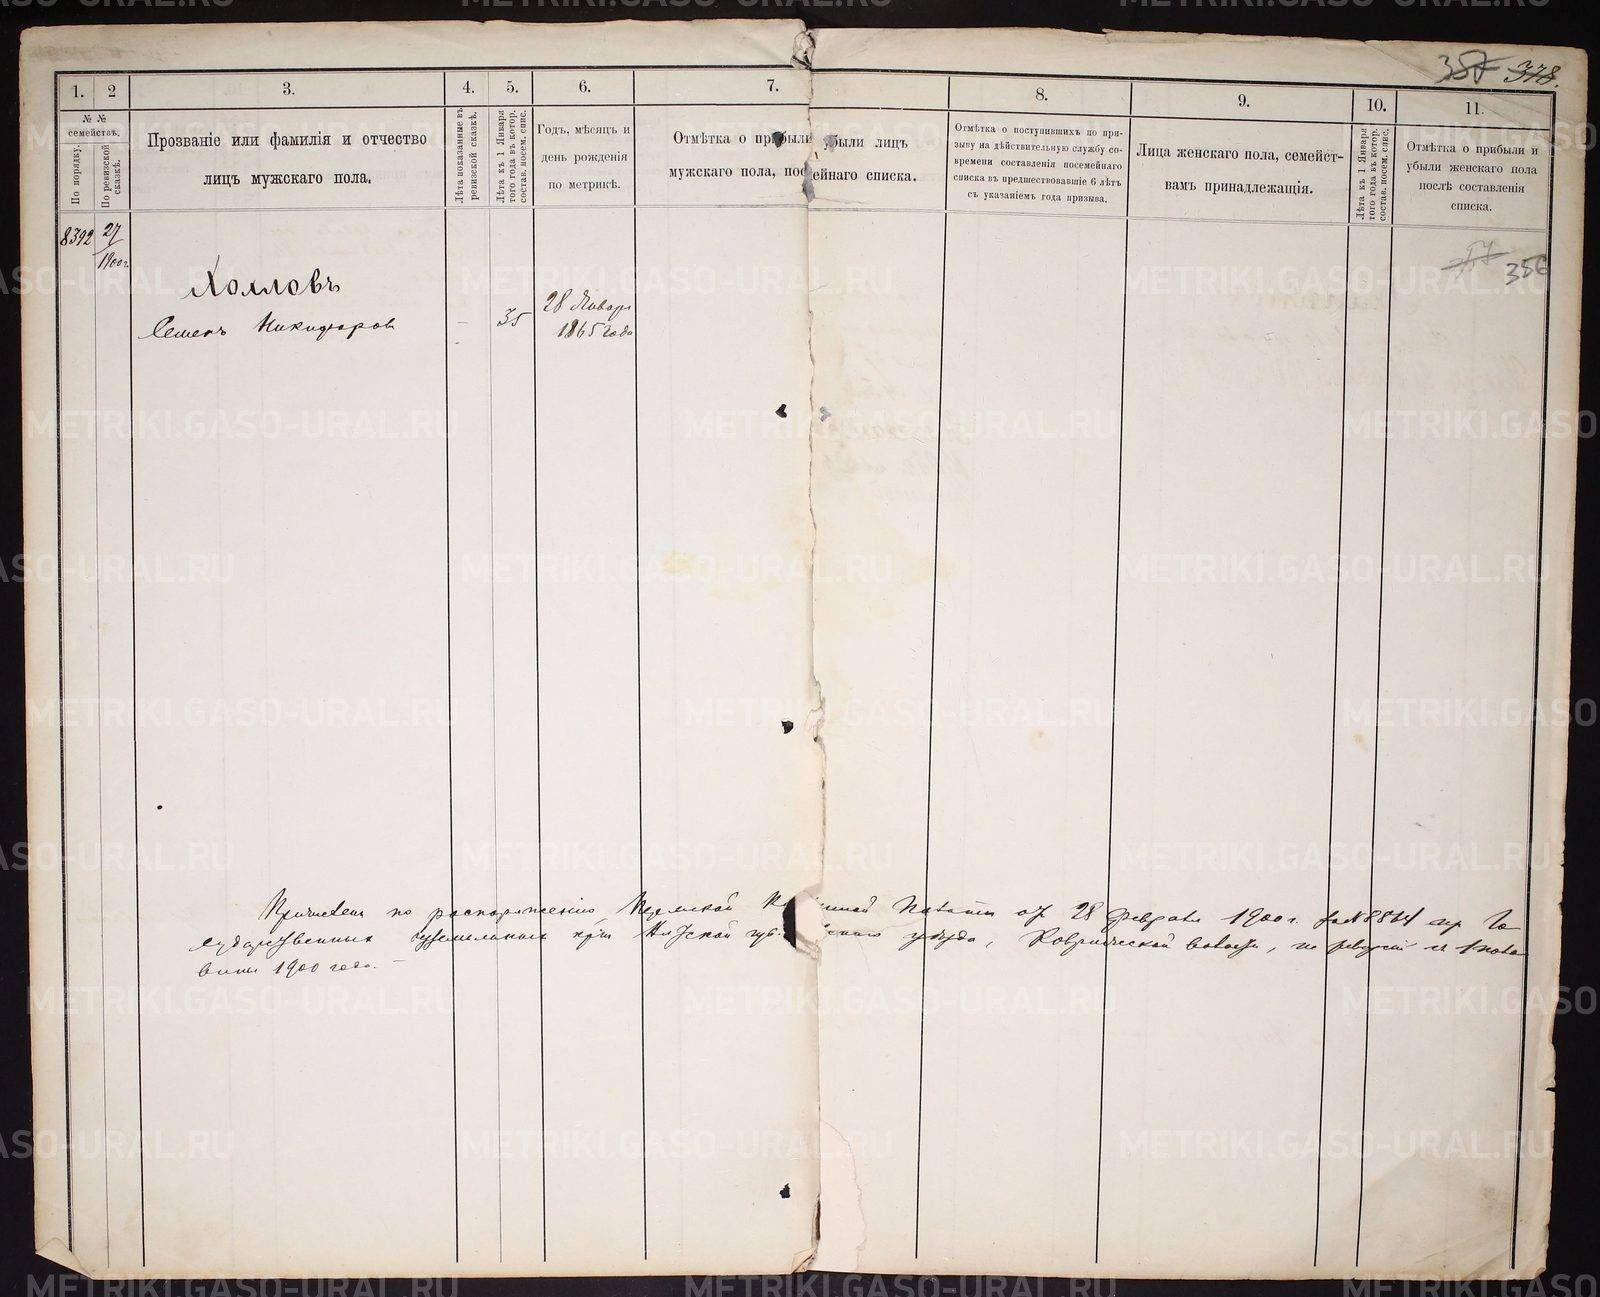 357 378.
1. 2 3. 4. 5. 6. 7. 8. 9. 10. 11.
№ №
семействъ.
По порядку.
По ревизской
сказкѣ.
Прозваніе или фамилія и отчество
лицъ мужскаго пола.
Лѣта показанные въ
ревизской сказкѣ.
Лѣта къ 1 Января
того года въ котор.
состав. посем. спис.
Годъ, мѣсяцъ и
день рожденія
по метрикѣ.
Отмѣтка о прибыли убыли лицъ
мужскаго пола, посемейнаго списка.
Отмѣтка о поступившихъ по при-
зыву на дѣйствительную службу со-
времени составленія посемейнаго
списка въ предшествовавшіе 6 лѣтъ
съ указаніемъ года призыва.
Лица женскаго пола, семейст-
вамъ принадлежащія.
Лѣта къ 1 Января
того года въ котор.
состав. посем. спис.
Отмѣтка о прибыли и
убыли женскаго пола
послѣ составленія
списка.
8392 27
1900г.
357 356
Семенъ Никифоров
— 35
28 Январ
1865 года
Причислен по распоряженію Пермской Казенной Палаты от 28 Февраля 1900 г. за №8814 из Го
сударственных крѣст Вятской губ. уѣзда, волости, по ревизіи с 1 поло
вины 1900 года. —
METRIKI.GASO-URAL.RU